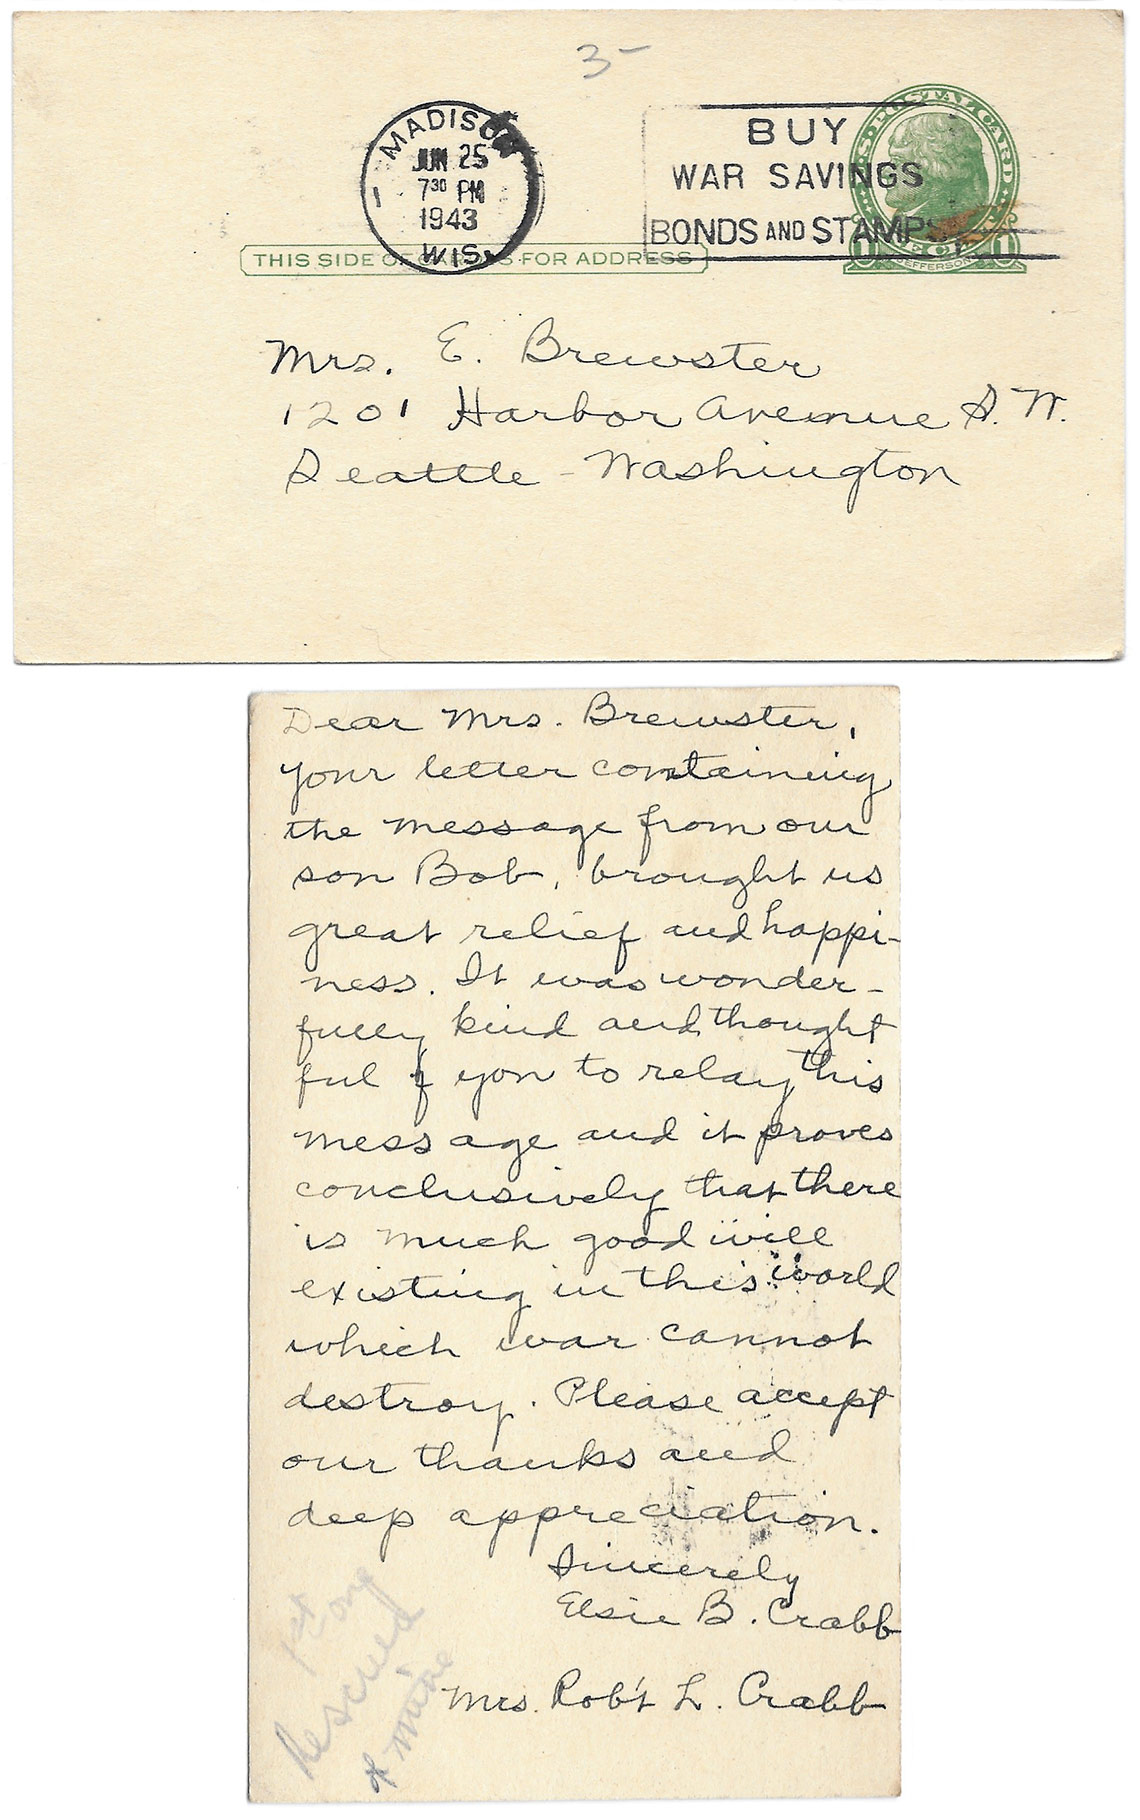 3-
MADISON
JUN 25
7 30 PM
1943
WIS.
1
BUY
WAR SAVINGS
BONDS AND STAMPS
U.S. POSTAL CARD
JEFFERSON
THIS SIDE OF CARD IS FOR ADDRESS
Mrs. E. Brewster
1201 Harbor Avenue S.W.
Seattle - Washington
Dear Mrs. Brewster,
Your letter containing
the message from our
son Bob, brought us
great relief and happi-
ness. It was wonder-
fully kind and thought
ful of you to relay this
message and it proves
conclusively that there
is much good will
existing in this world
which war cannot
destroy. Please accept
our thanks and
deep appreciation.
Sincerely
Elsie B. Crabb
Mrs. Rob't L. Crabb
1st one
he
of mine